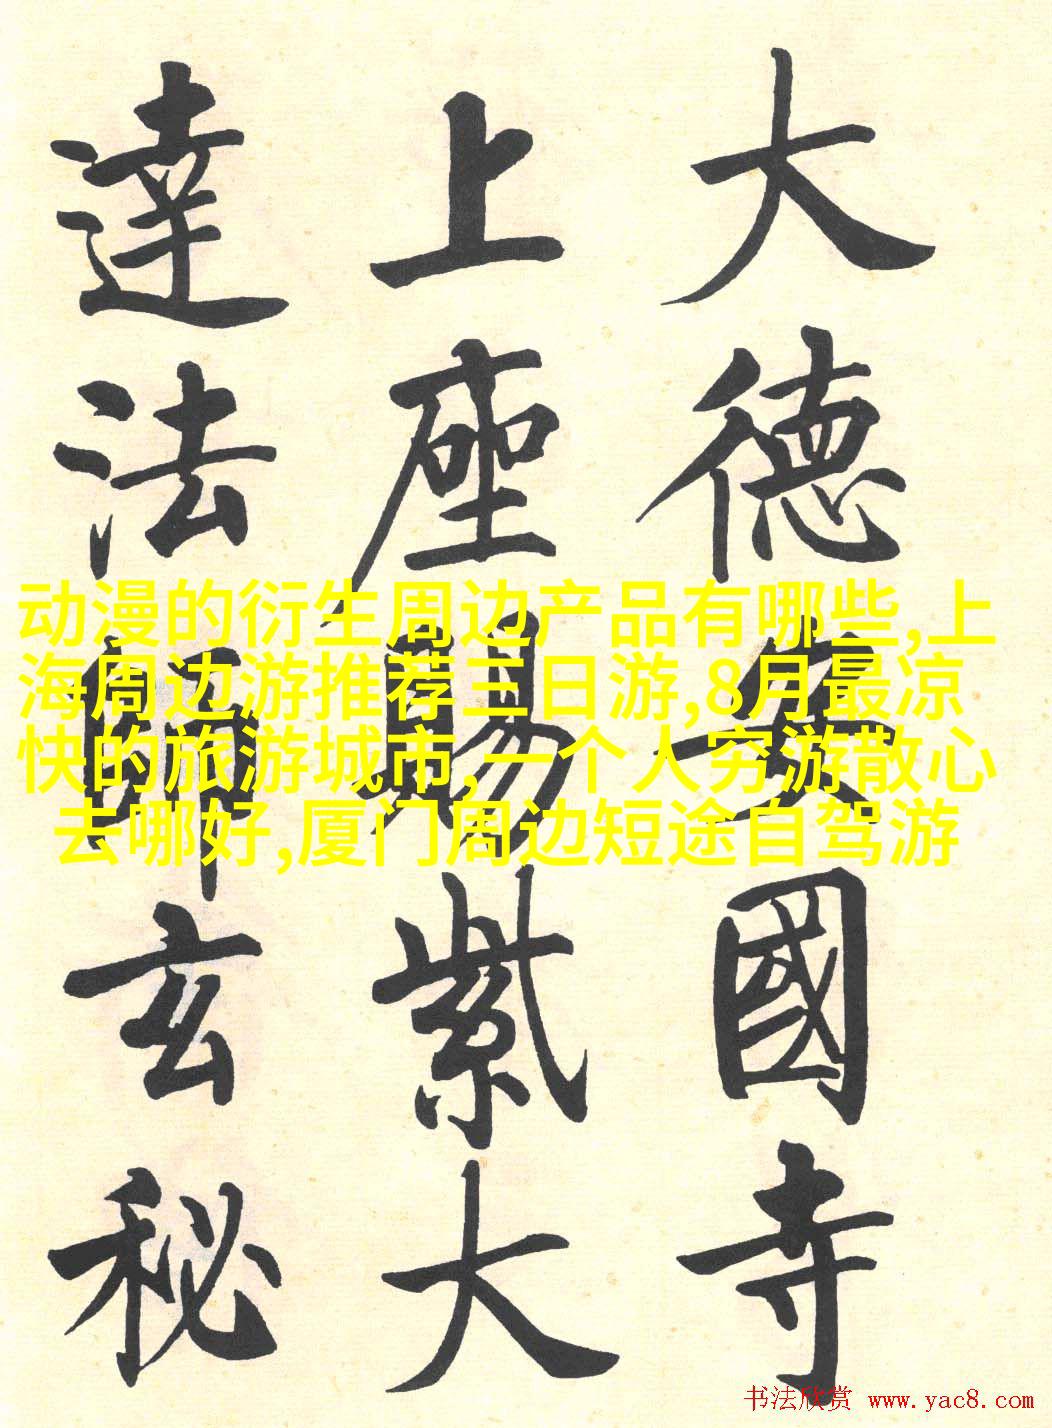 大德安國寺
上座賜紫大
達法師玄秘
动漫的衍生周边产品有哪些,上
海周边游推荐三日游,8月最凉
快的旅游城市,一个人穷游散心
去哪好,厦门周边短途自驾游
书法欣赏 www.yac8.com